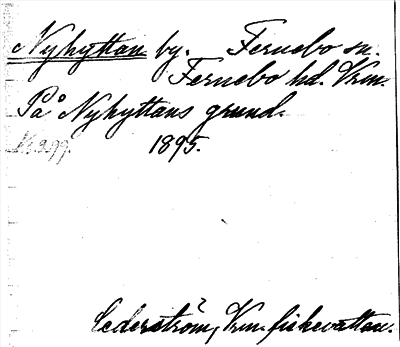 Nyhyttan by. Fernebo sn.
Fernebo hd. Vrm.
På Nyhyttans grund.
1895.
Cederström, Vrm. fiskevatten.